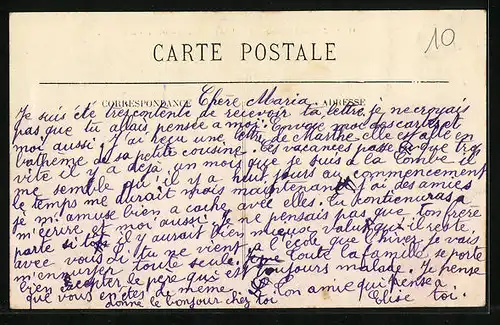 10
CARTE POSTALE
CORRESPONDANCE ADRESSE
Chere Maria
Je suis été tres contente de recevoir ta lettre je ne croyais
pas que tu allais pensée a moi. Envoye moi des cartes et
moi aussi j'ai reçu une lettre de Marthe elle est allé en
bathème de sa petite cousine. Les vacances passe que trop
vite il y a deja un mois que je suis a la Combe il
me semble qu'il y a huit jours au commencement
le temps me durait mais maintenant j'ai des amies
je m'amuse bien a cache avec elles. Tu continueras a
m'ecrire et moi aussi. Je ne pensais pas que ton frère
parte si tot il y aurait bien mieux valut qui il reste
avec vous si tu ne vient a l'école que l'hiver je vais
m'ennuyer toute seule. Toute la famille se porte
bien excepter le pere qui est toujours malade. Je pense
que vous en etes de meme. Ton amie qui pense a
donne le bonjour chez toi Elise toi.